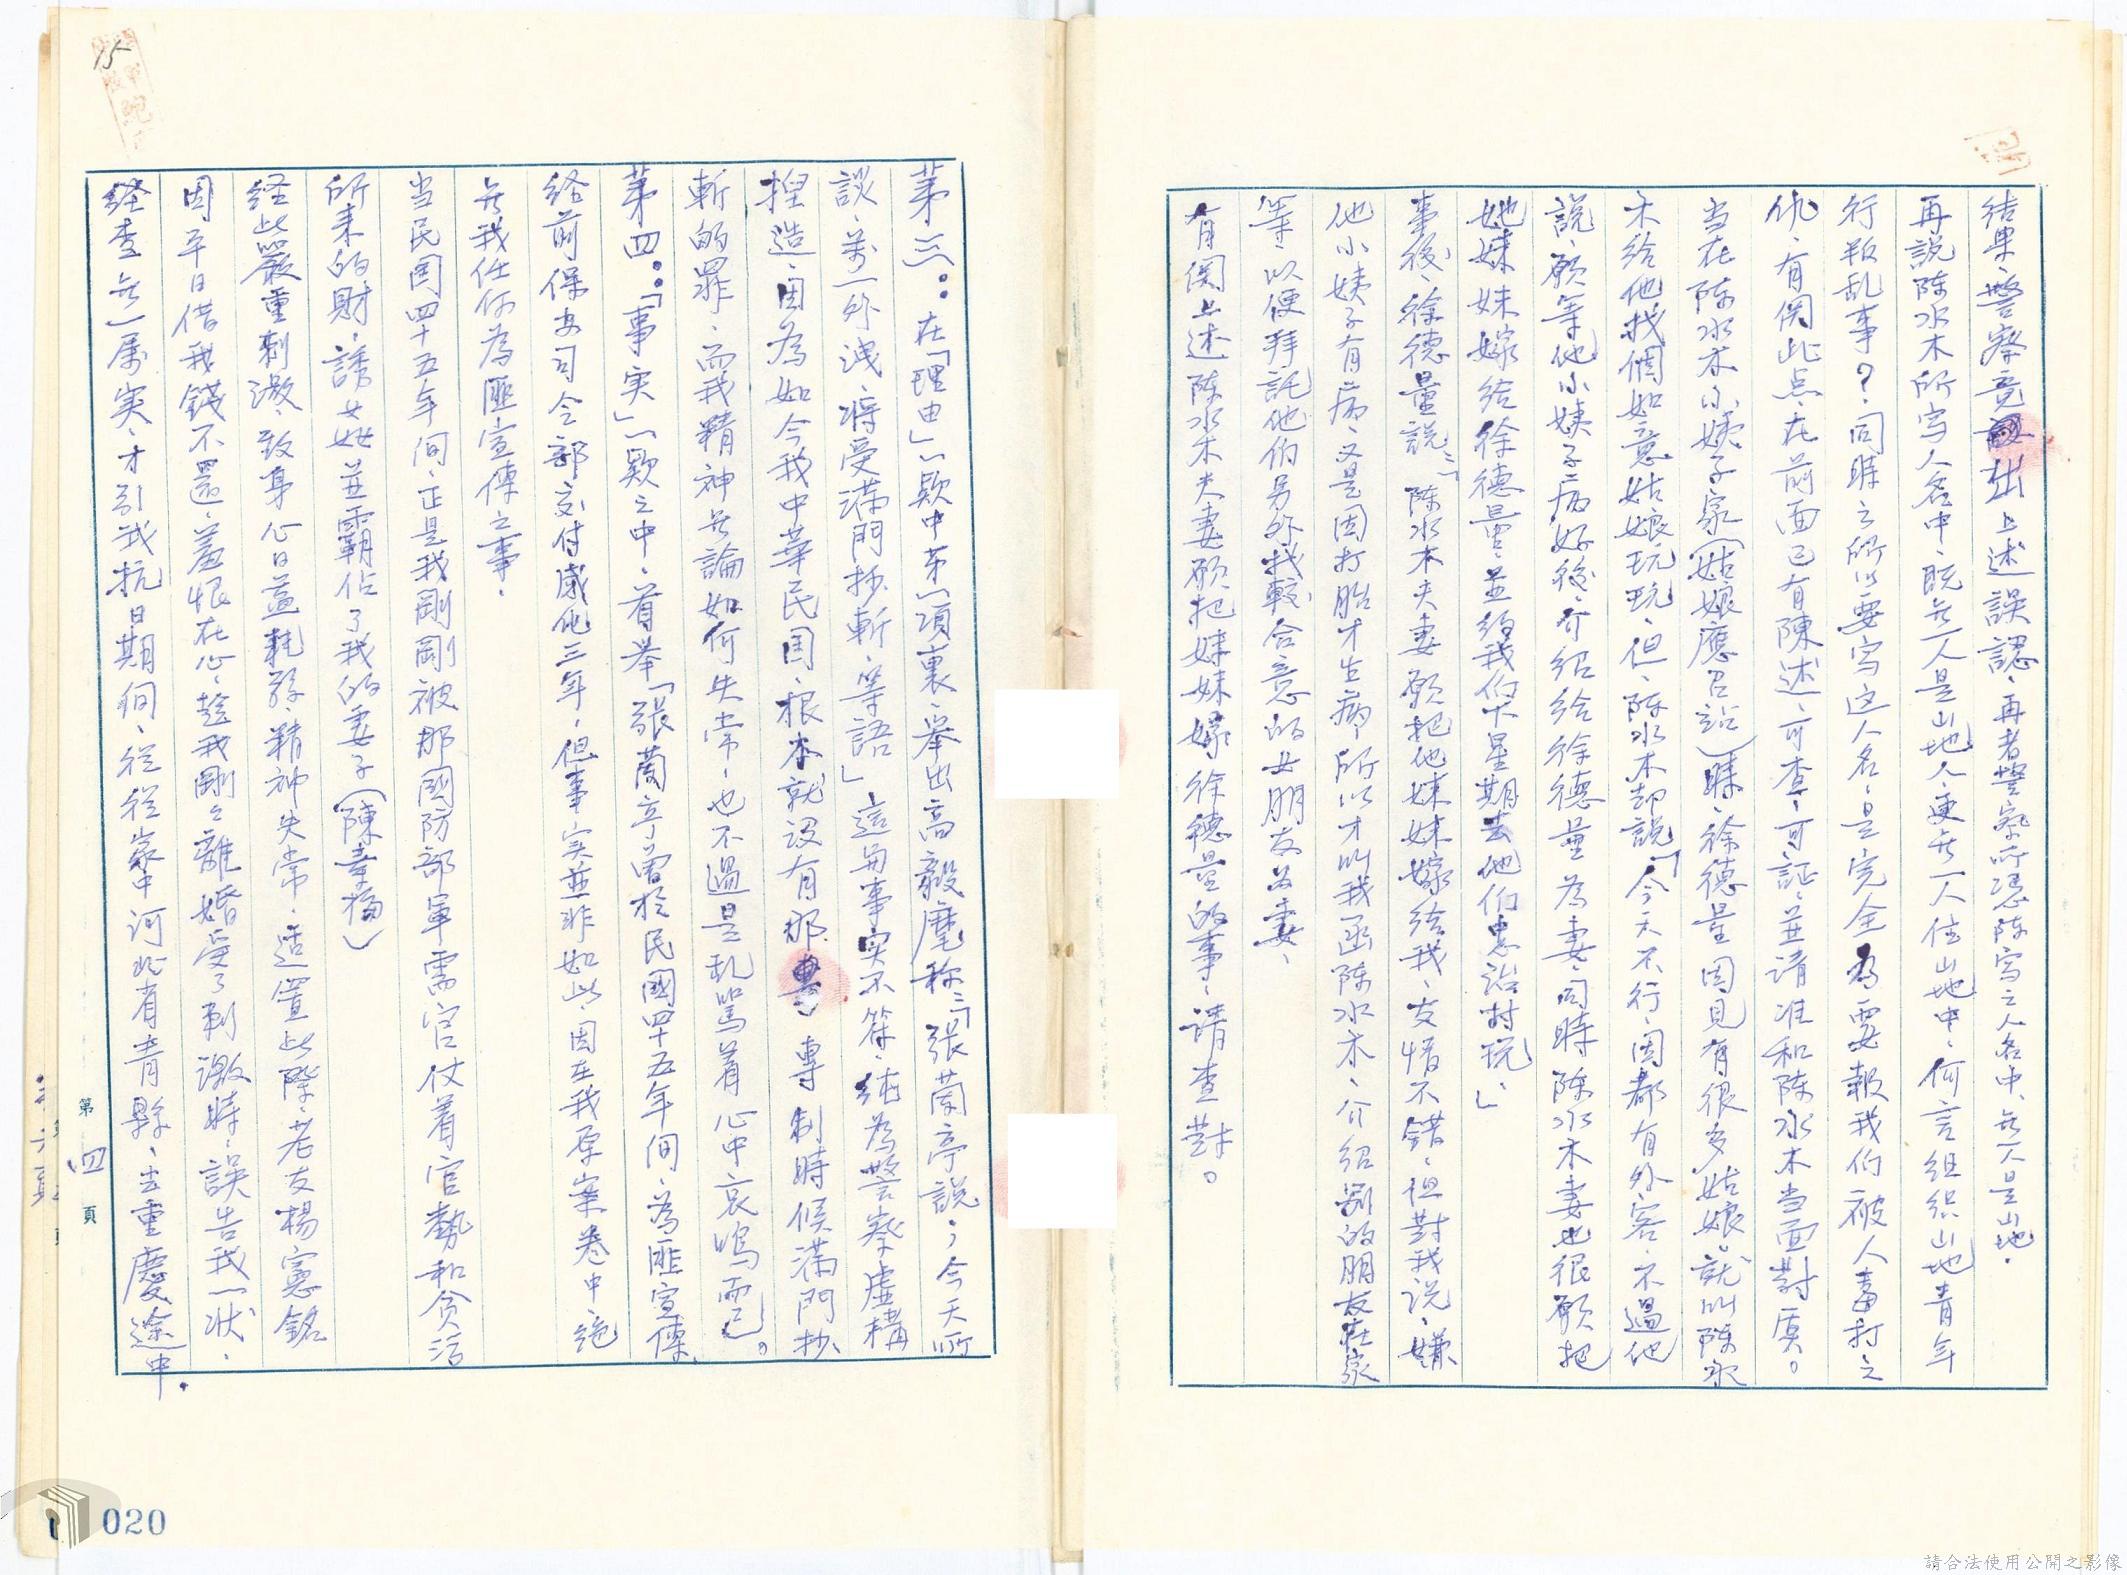 結果、警察竟出上述誤認、再者警察所憑陈寫之人名中、無一人是山地。
再説陈水木所写人名中、既无一人是山地人、更无一人住山地中、何言组织山地青年
行叛乱事？同時之所以要写这人名、是完全為要報我们被人毒打之
仇、有関此点、在前面已有陳述、可查、可証、並請准和陈水木当面對质。
当在陈水木小姨子家(姑娘應召站)時、徐德量因見有很多姑娘、就叫陈水
木给他找個如意姑娘玩玩、但、陈水木却説「今天不行、因都有外客、不過他
説、願等他小姨子病好後、介绍给徐德量為妻、同時陈水木妻也很願把
她妹妹嫁给徐德量、並约我们下星期去他们患治村玩、」
事後、徐德量說：「陈水木夫妻願把他妹妹嫁给我、友情不錯、但對我说、嫌
他小姨子有病、又是因打胎才生病、所以才叫我函陈水木、介绍别的朋友在家
等、以便拜託他们另外找較合意的女朋友为妻、
有関上述陈水木夫妻願把妹妹嫁徐德量的事、請查對。
第三：在「理由」一欵中第一項裏、舉出高毅麾称：「張蘭亭説、今天所
談、萬一外洩、將受满門抄斬、等語」這與事実不符、純為警察虚構
揑造、因為如今我中華民国、根本就没有那專制時候满門抄
斬的罪、而我精神无論如何失常、也不過是乱駡着心中哀鳴而已。
第四：「事実」一欵之中、着举「張蘭亭曾於民國四十五年间、為匪宣傳、
经前保安司令部交付感化三年、但事実並非如此、因在我原案卷中絶
无我任何為匪宣傳之事。
当民国四十五年间、正是我剛剛被那國防部軍需官仗着官勢和贪污
所来的財、誘姦並霸佔了我的妻子(陳幸福)
经此嚴重刺激、致身心日益耗弱、精神失常、适置此際、老友楊憲銘
因平日借我錢不還、羞恨在心、趁我剛剛離婚受了刺激時、誤告我一状、
经查无一属实、才引我抗日期间、从从家中河北省青縣、去重慶途中、
第四頁
15
020
請合法使用公開之影像